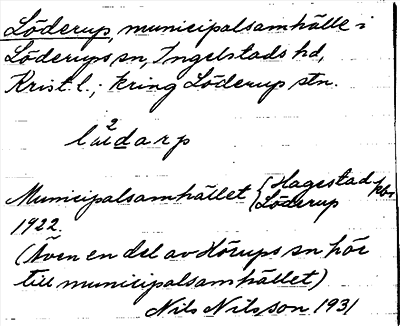 Löderup, municipalsamhälle i
Löderups sn, Ingelstads hd,
Krist. l.; kring Löderup stn.
2
Municipalsamhället { Hagestad
Löderup
1922.
(Även en del av Hörups sn hör
till municipalsamhället)
Nils Nilsson 1931